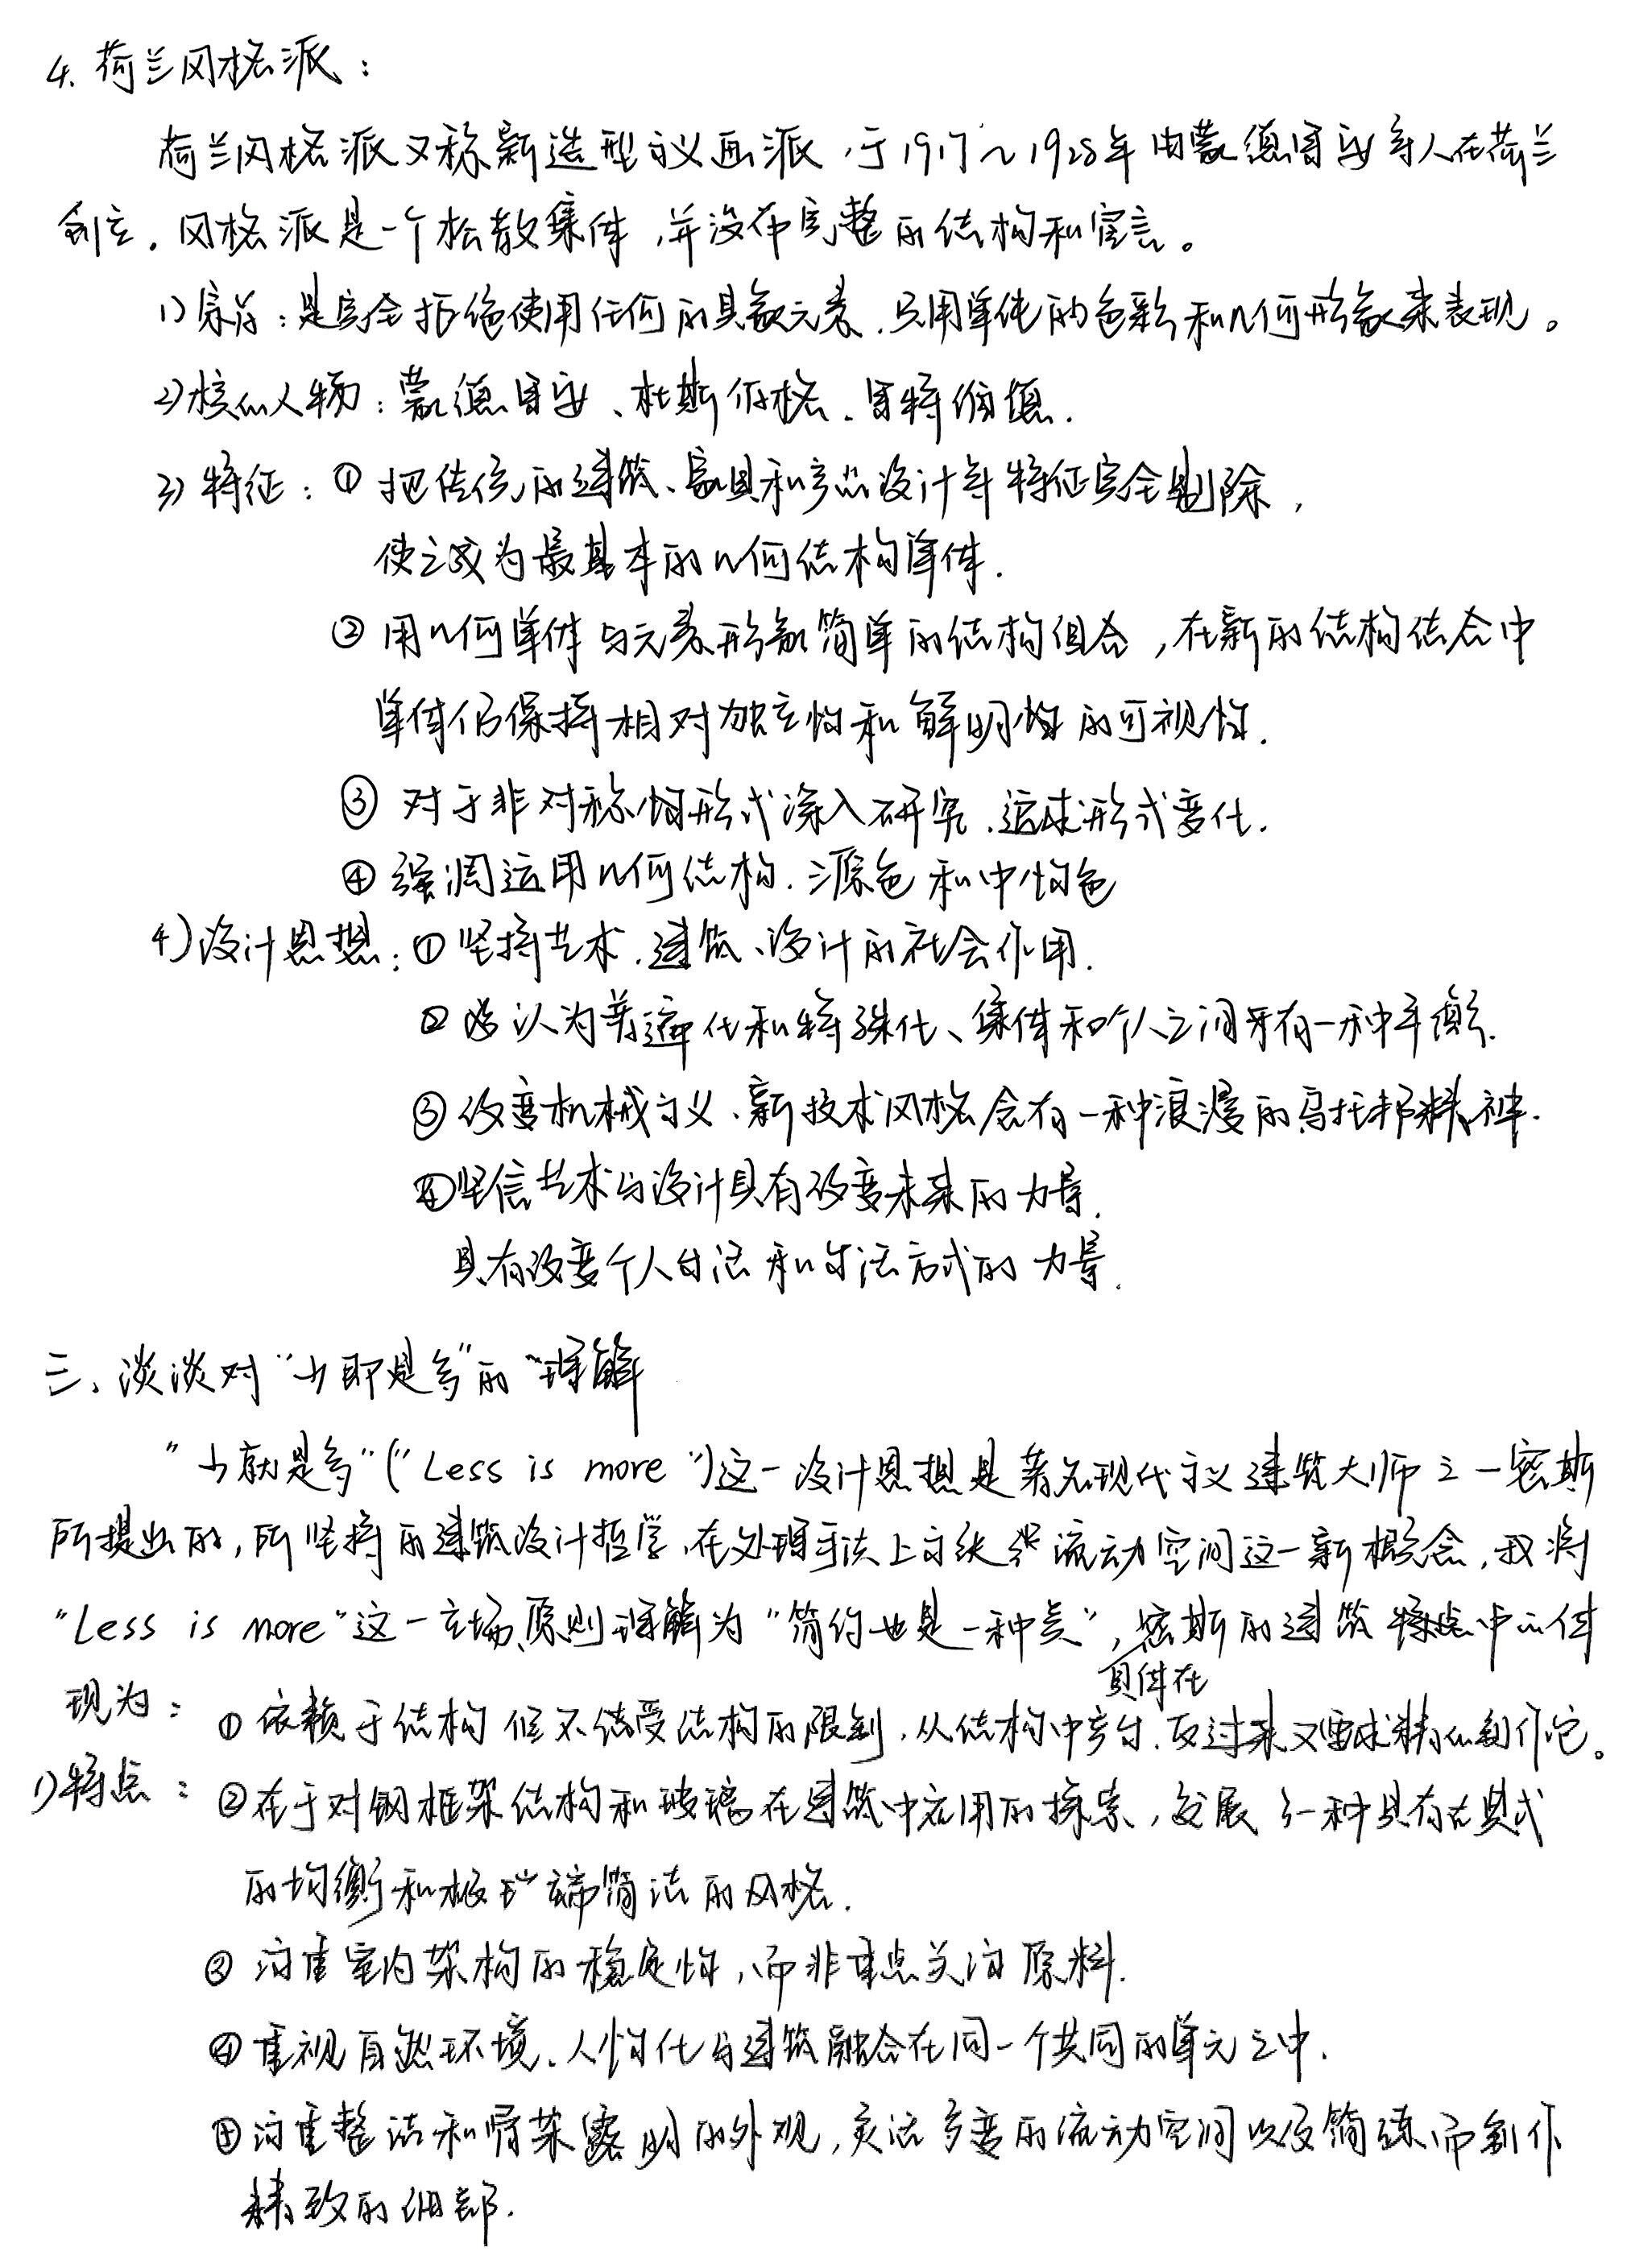 4. 荷兰风格派：
荷兰风格派又称新造型主义画派，于1917~1928年由蒙德里安等人在荷兰
创立。风格派是一个松散集体，并没有完整的结构和宣言。
1) 宗旨：是完全拒绝使用任何的具象元素，只用单纯的色彩和几何形象来表现。
2) 核心人物：蒙德里安、杜斯伯格、里特维德.
3) 特征：① 把传统的建筑、家具和产品设计等特征完全剔除，
使之成为最基本的几何结构单体.
② 用几何单体与元素形象简单的结构组合，在新的结构结合中
单体仍保持相对独立性和鲜明性的可视性.
③ 对于非对称性形式深入研究，追求形式变化.
④ 强调运用几何结构、三原色和中性色
4) 设计思想：① 坚持艺术、建筑、设计的社会作用.
② 认为普遍化和特殊化、集体和个人之间存有一种平衡.
③ 改变机械主义、新技术风格含有一种浪漫的乌托邦精神.
④ 坚信艺术与设计具有改变未来的力量.
具有改变个人生活和生活方式的力量.
三、淡淡对“少即是多”的理解
“少就是多”(“Less is more”)这一设计思想是著名现代主义建筑大师之一密斯
所提出的，所坚持的建筑设计哲学，在处理手法上主张流动空间这一新概念，我将
“Less is more”这一立场、原则理解为“简约也是一种美”，密斯的建筑特点中心体
具体在
现为：① 依赖于结构但不结受结构的限制，从结构中产生，反过来又要求精心制作它。
1) 特点：② 在于对钢框架结构和玻璃在建筑中应用的探索，发展了一种具有古典式
的均衡和极端简洁的风格.
③ 注重室内架构的稳定性，而非重点关注原料.
④ 重视自然环境、人性化与建筑融合在同一个共同的单元之中.
⑤ 注重整洁和骨架露明的外观，灵活多变的流动空间以及简练而制作
精致的细部.